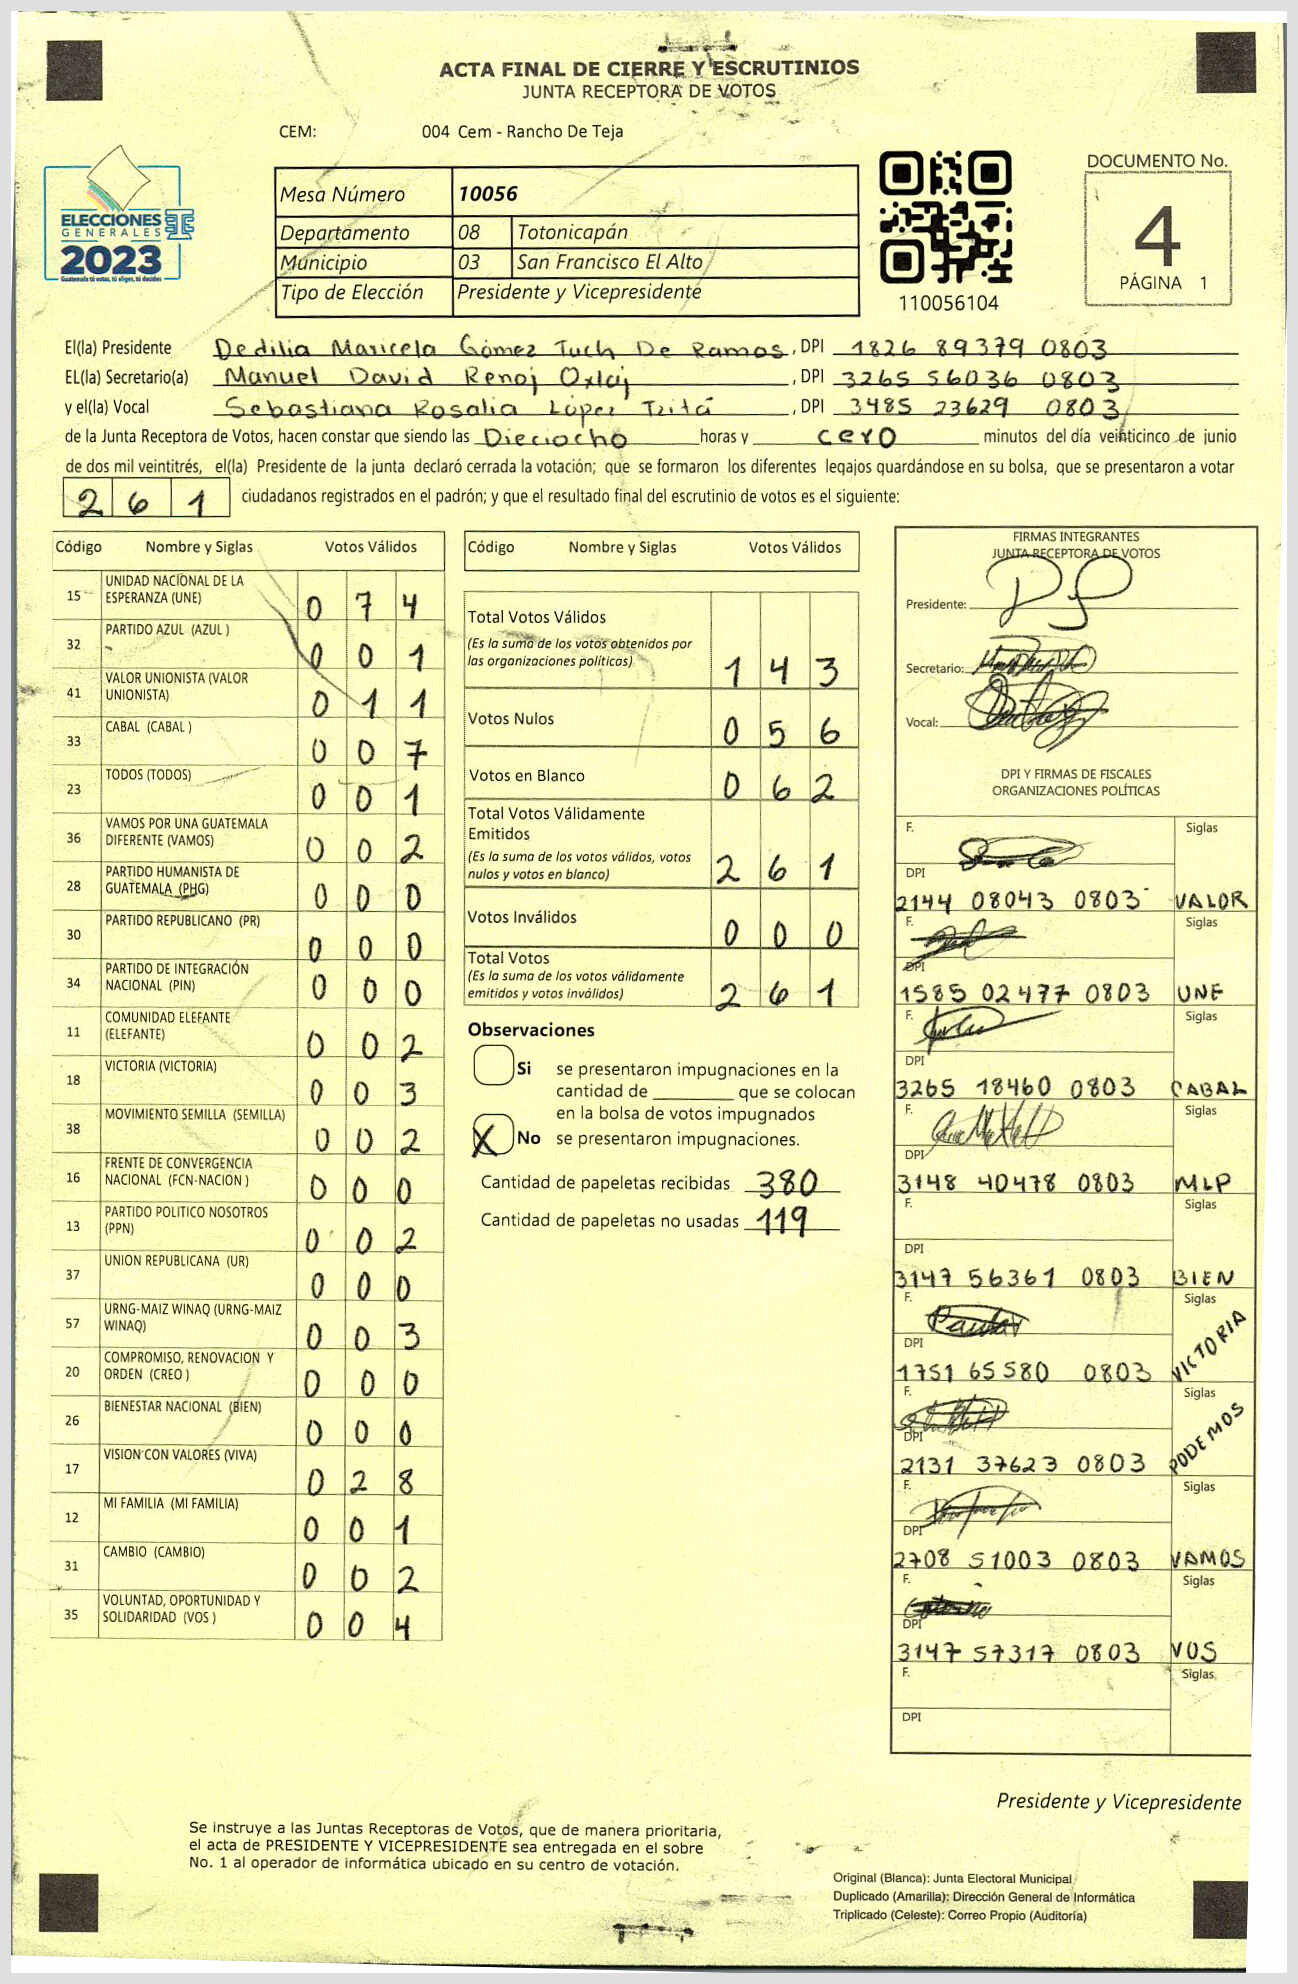 ACTA FINAL DE CIERRE Y ESCRUTINIOS
JUNTA RECEPTORA DE VOTOS
CEM: 004 Cem - Rancho De Teja
ELECCIONES
GENERALES
2023
Guatemala tú votas, tú eliges, tú decides
Mesa Número 10056
Departamento 08 Totonicapán
Municipio 03 San Francisco El Alto
Tipo de Elección Presidente y Vicepresidente
110056104
DOCUMENTO No.
4
PÁGINA 1
El(la) Presidente Dedilia Maricela Gómez Tuch De Ramos, DPI 1826 89379 0803
EL(la) Secretario(a) Manuel David Renoj Oxlaj, DPI 3265 56036 0803
y el(la) Vocal Sebastiana Rosalia López Tzitá, DPI 3485 23629 0803
de la Junta Receptora de Votos, hacen constar que siendo las Dieciocho horas y cero minutos del día veinticinco de junio
de dos mil veintitrés, el(la) Presidente de la junta declaró cerrada la votación; que se formaron los diferentes legajos guardándose en su bolsa, que se presentaron a votar
261 ciudadanos registrados en el padrón; y que el resultado final del escrutinio de votos es el siguiente:
Código Nombre y Siglas Votos Válidos
15 UNIDAD NACIONAL DE LA
ESPERANZA (UNE) 0 7 4
32 PARTIDO AZUL (AZUL ) 0 0 1
41 VALOR UNIONISTA (VALOR
UNIONISTA) 0 1 1
33 CABAL (CABAL ) 0 0 7
23 TODOS (TODOS) 0 0 1
36 VAMOS POR UNA GUATEMALA
DIFERENTE (VAMOS) 0 0 2
28 PARTIDO HUMANISTA DE
GUATEMALA (PHG) 0 0 0
30 PARTIDO REPUBLICANO (PR) 0 0 0
34 PARTIDO DE INTEGRACIÓN
NACIONAL (PIN) 0 0 0
11 COMUNIDAD ELEFANTE
(ELEFANTE) 0 0 2
18 VICTORIA (VICTORIA) 0 0 3
38 MOVIMIENTO SEMILLA (SEMILLA) 0 0 2
16 FRENTE DE CONVERGENCIA
NACIONAL (FCN-NACION ) 0 0 0
13 PARTIDO POLITICO NOSOTROS
(PPN) 0 0 2
37 UNION REPUBLICANA (UR) 0 0 0
57 URNG-MAIZ WINAQ (URNG-MAIZ
WINAQ) 0 0 3
20 COMPROMISO, RENOVACION Y
ORDEN (CREO ) 0 0 0
26 BIENESTAR NACIONAL (BIEN) 0 0 0
17 VISION CON VALORES (VIVA) 0 2 8
12 MI FAMILIA (MI FAMILIA) 0 0 1
31 CAMBIO (CAMBIO) 0 0 2
35 VOLUNTAD, OPORTUNIDAD Y
SOLIDARIDAD (VOS ) 0 0 4
Código Nombre y Siglas Votos Válidos
Total Votos Válidos
(Es la suma de los votos obtenidos por
las organizaciones políticas) 1 4 3
Votos Nulos 0 5 6
Votos en Blanco 0 6 2
Total Votos Válidamente
Emitidos
(Es la suma de los votos válidos, votos
nulos y votos en blanco) 2 6 1
Votos Inválidos 0 0 0
Total Votos
(Es la suma de los votos válidamente
emitidos y votos inválidos) 2 6 1
Observaciones
Si se presentaron impugnaciones en la
cantidad de ________ que se colocan
en la bolsa de votos impugnados
X No se presentaron impugnaciones.
Cantidad de papeletas recibidas 380
Cantidad de papeletas no usadas 119
FIRMAS INTEGRANTES
JUNTA RECEPTORA DE VOTOS
Presidente:
Secretario:
Vocal:
DPI Y FIRMAS DE FISCALES
ORGANIZACIONES POLÍTICAS
F. Siglas
DPI
2144 08043 0803 VALOR
F. Siglas
DPI
1585 02477 0803 UNE
F. Siglas
DPI
3265 18460 0803 CABAL
F. Siglas
DPI
3148 40478 0803 MLP
F. Siglas
DPI
3147 56361 0803 BIEN
F. Siglas
DPI
1751 65580 0803 VICTORIA
F. Siglas
DPI
2131 37623 0803 PODEMOS
F. Siglas
DPI
2708 51003 0803 VAMOS
F. Siglas
DPI
3147 57317 0803 VOS
F. Siglas
DPI
Presidente y Vicepresidente
Se instruye a las Juntas Receptoras de Votos, que de manera prioritaria,
el acta de PRESIDENTE Y VICEPRESIDENTE sea entregada en el sobre
No. 1 al operador de informática ubicado en su centro de votación.
Original (Blanca): Junta Electoral Municipal
Duplicado (Amarilla): Dirección General de Informática
Triplicado (Celeste): Correo Propio (Auditoría)